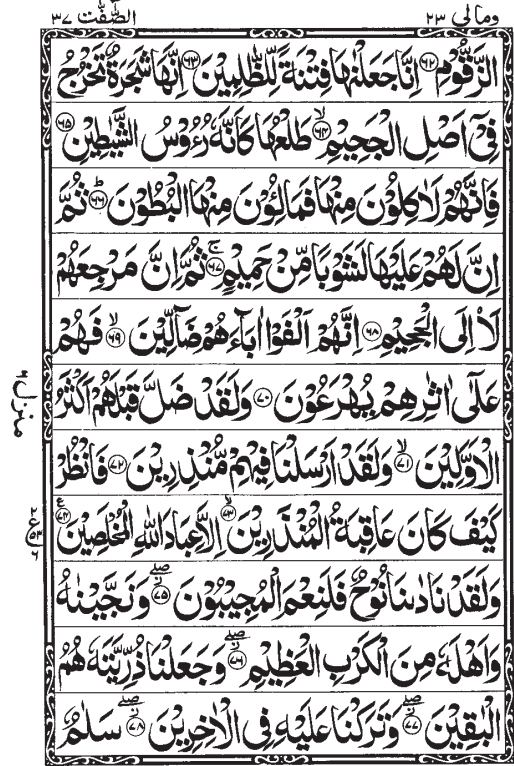 ومالی ۲۳ الصّٰفّٰت ۳۷
الزَّقُّوۡمِ ﴿۶۲﴾ اِنَّا جَعَلۡنٰهَا فِتۡنَةً لِّلظّٰلِمِيۡنَ ﴿۶۳﴾ اِنَّهَا شَجَرَةٌ تَخۡرُجُ
فِىۡۤ اَصۡلِ الۡجَحِيۡمِۙ ﴿۶۴﴾ طَلۡعُهَا كَاَنَّهٗ رُءُوۡسُ الشَّيٰطِيۡنِ ﴿۶۵﴾
فَاِنَّهُمۡ لَاٰكِلُوۡنَ مِنۡهَا فَمٰلِئُوۡنَ مِنۡهَا الۡبُطُوۡنَؕ ﴿۶۶﴾ ثُمَّ
اِنَّ لَهُمۡ عَلَيۡهَا لَشَوۡبًا مِّنۡ حَمِيۡمٍۚ ﴿۶۷﴾ ثُمَّ اِنَّ مَرۡجِعَهُمۡ
لَا۟اِلَى الۡجَحِيۡمِ ﴿۶۸﴾ اِنَّهُمۡ اَلۡفَوۡا اٰبَآءَهُمۡ ضَآلِّيۡنَۙ ﴿۶۹﴾ فَهُمۡ
عَلٰٓى اٰثٰرِهِمۡ يُهۡرَعُوۡنَ ﴿۷۰﴾ وَلَقَدۡ ضَلَّ قَبۡلَهُمۡ اَكۡثَرُ
الۡاَوَّلِيۡنَۙ ﴿۷۱﴾ وَلَقَدۡ اَرۡسَلۡنَا فِيۡهِمۡ مُّنۡذِرِيۡنَ ﴿۷۲﴾ فَانْظُرۡ
كَيۡفَ كَانَ عَاقِبَةُ الۡمُنۡذَرِيۡنَۙ ﴿۷۳﴾ اِلَّا عِبَادَ اللّٰهِ الۡمُخۡلَصِيۡنَ ﴿۷۴﴾ ع
وَلَقَدۡ نَادٰٮنَا نُوۡحٌ فَلَنِعۡمَ الۡمُجِيۡبُوۡنَ ۖ ﴿۷۵﴾ وَنَجَّيۡنٰهُ
وَاَهۡلَهٗ مِنَ الۡكَرۡبِ الۡعَظِيۡمِ ۖ ﴿۷۶﴾ وَجَعَلۡنَا ذُرِّيَّتَهٗ هُمُ
الۡبٰقِيۡنَ ۖ ﴿۷۷﴾ وَتَرَكۡنَا عَلَيۡهِ فِى الۡاٰخِرِيۡنَ ۖ ﴿۷۸﴾ سَلٰمٌ
منزل ۶
۲
ع ۵۳
۶